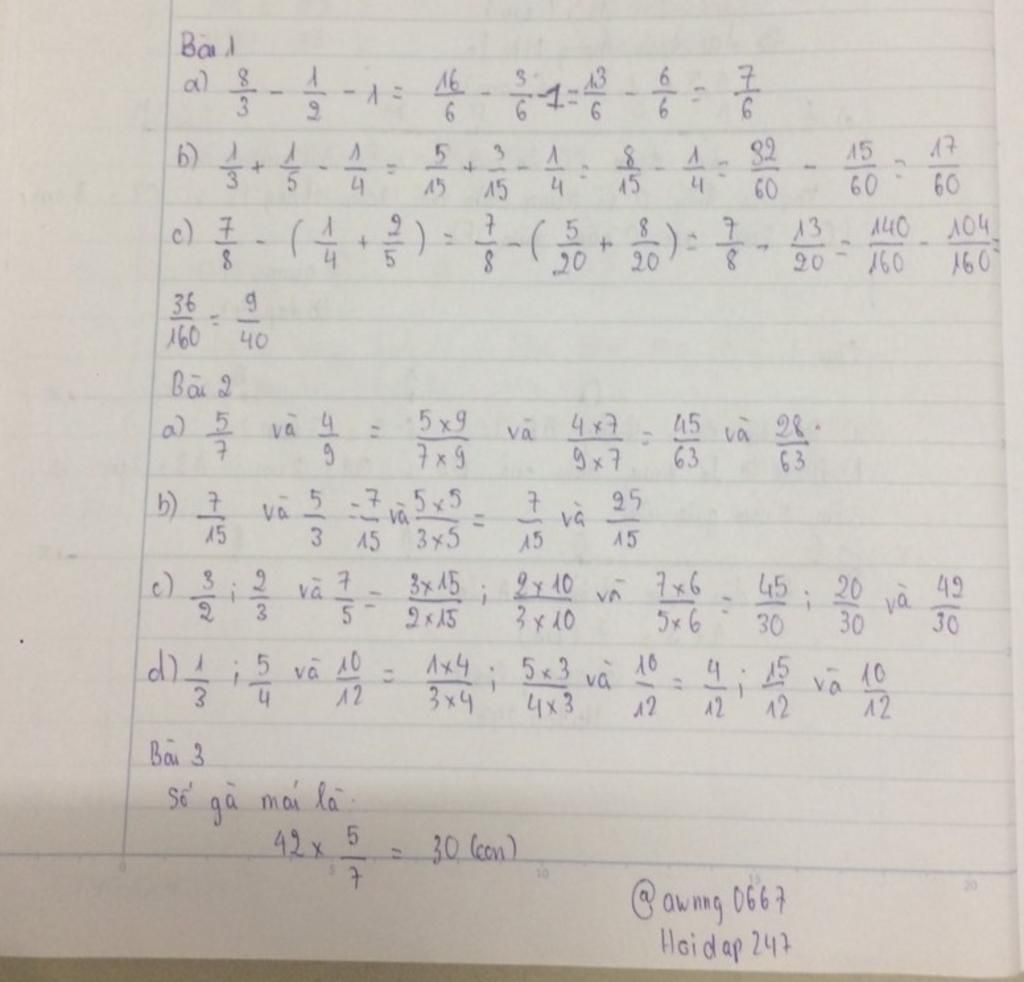 Bài 1
a) 8/3 - 1/2 - 1 = 16/6 - 3/6 - 1 = 13/6 - 6/6 = 7/6
b) 1/3 + 1/5 - 1/4 = 5/15 + 3/15 - 1/4 = 8/15 - 1/4 = 32/60 - 15/60 = 17/60
c) 7/8 - (1/4 + 2/5) = 7/8 - (5/20 + 8/20) = 7/8 - 13/20 = 140/160 - 104/160 =
36/160 = 9/40
Bài 2
a) 5/7 và 4/9 = 5×9/7×9 và 4×7/9×7 = 45/63 và 28/63.
b) 7/15 và 5/3 = 7/15 và 5×5/3×5 = 7/15 và 25/15
c) 3/2 ; 2/3 và 7/5 = 3×15/2×15 ; 2×10/3×10 và 7×6/5×6 = 45/30 ; 20/30 và 42/30
d) 1/3 ; 5/4 và 10/12 = 1×4/3×4 ; 5×3/4×3 và 10/12 = 4/12 ; 15/12 và 10/12
Bài 3
Số gà mái là:
42 × 5/7 = 30 (con)
0 5 10 15 20
@awnng0667
Hoidap247